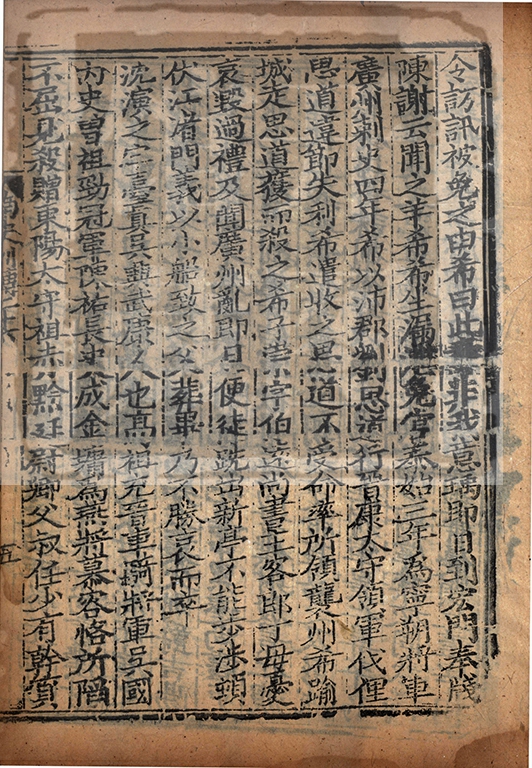 令訪訊被免之由希曰此非我意瑀即日到宏門奉牋
陳謝云聞之羊希希坐漏泄免官泰始三年為寧朔將軍
廣州刺史四年希以沛郡劉思道行晉康太守領軍伐俚
思道違節失利希遣收之思道不受命率所領襲州希踰
城走思道獲而殺之希子崇字伯遠尚書主客郎丁母憂
哀毀過禮及聞廣州亂即日便徒跣出新亭不能步涉頓
伏江渚門義以小船致之父葬畢乃不勝哀而卒
沈演之字臺真吳興武康人也高祖充晉車騎將軍吳國
內史曾祖勁冠軍陳祐長史戍金墉為燕將慕容恪所陷
不屈見殺贈東陽太守祖赤黔廷尉卿父叔任少有幹質
五